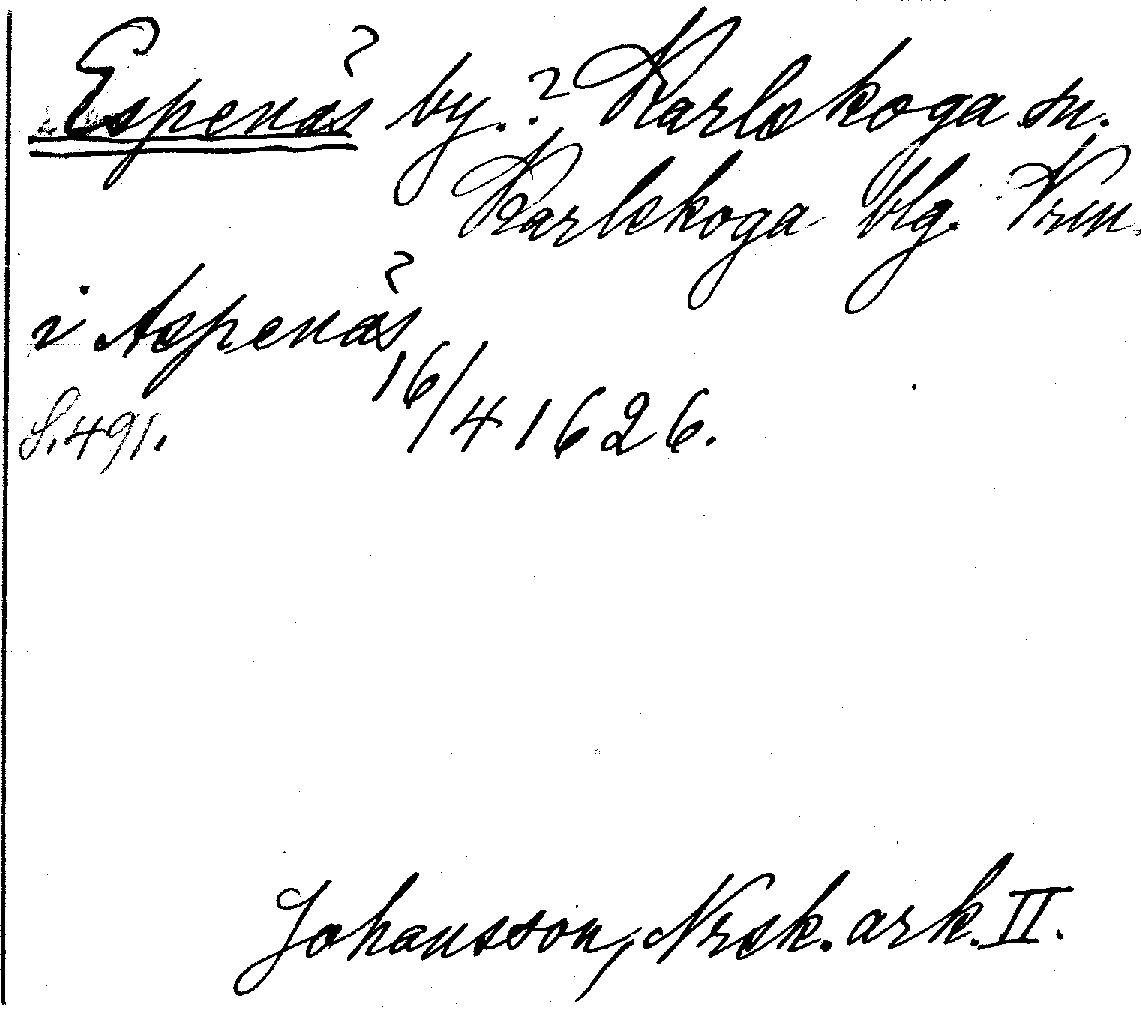 Espenäs by.? Karlskoga sn.
Karlskoga blg. Vrm.
i Aspenäs
S. 491. 16/4 1626.
Johansson, Nrsk. ark. II.